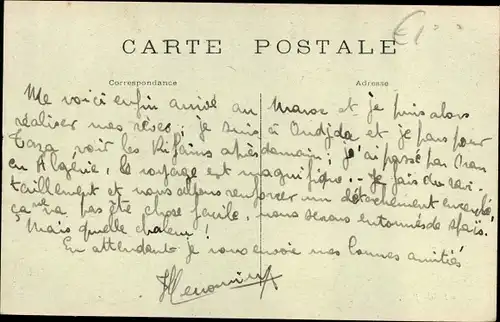 CARTE POSTALE
Correspondance
Adresse
Me voici enfin arrivé au Maroc et je puis alors
réaliser mes rêves ; je suis à Oudjda et je pars pour
Taza, voir les Rifains après demain ; j'ai passé par Oran
en Algérie, le voyage est magnifique... Je fais du ravi-
taillement et nous allons renforcer un détachement encerclé,
ça ne va pas être chose facile, nous serons entourés de
Mais quelle chaleur !
En attendant je vous envoie mes bonnes amitiés